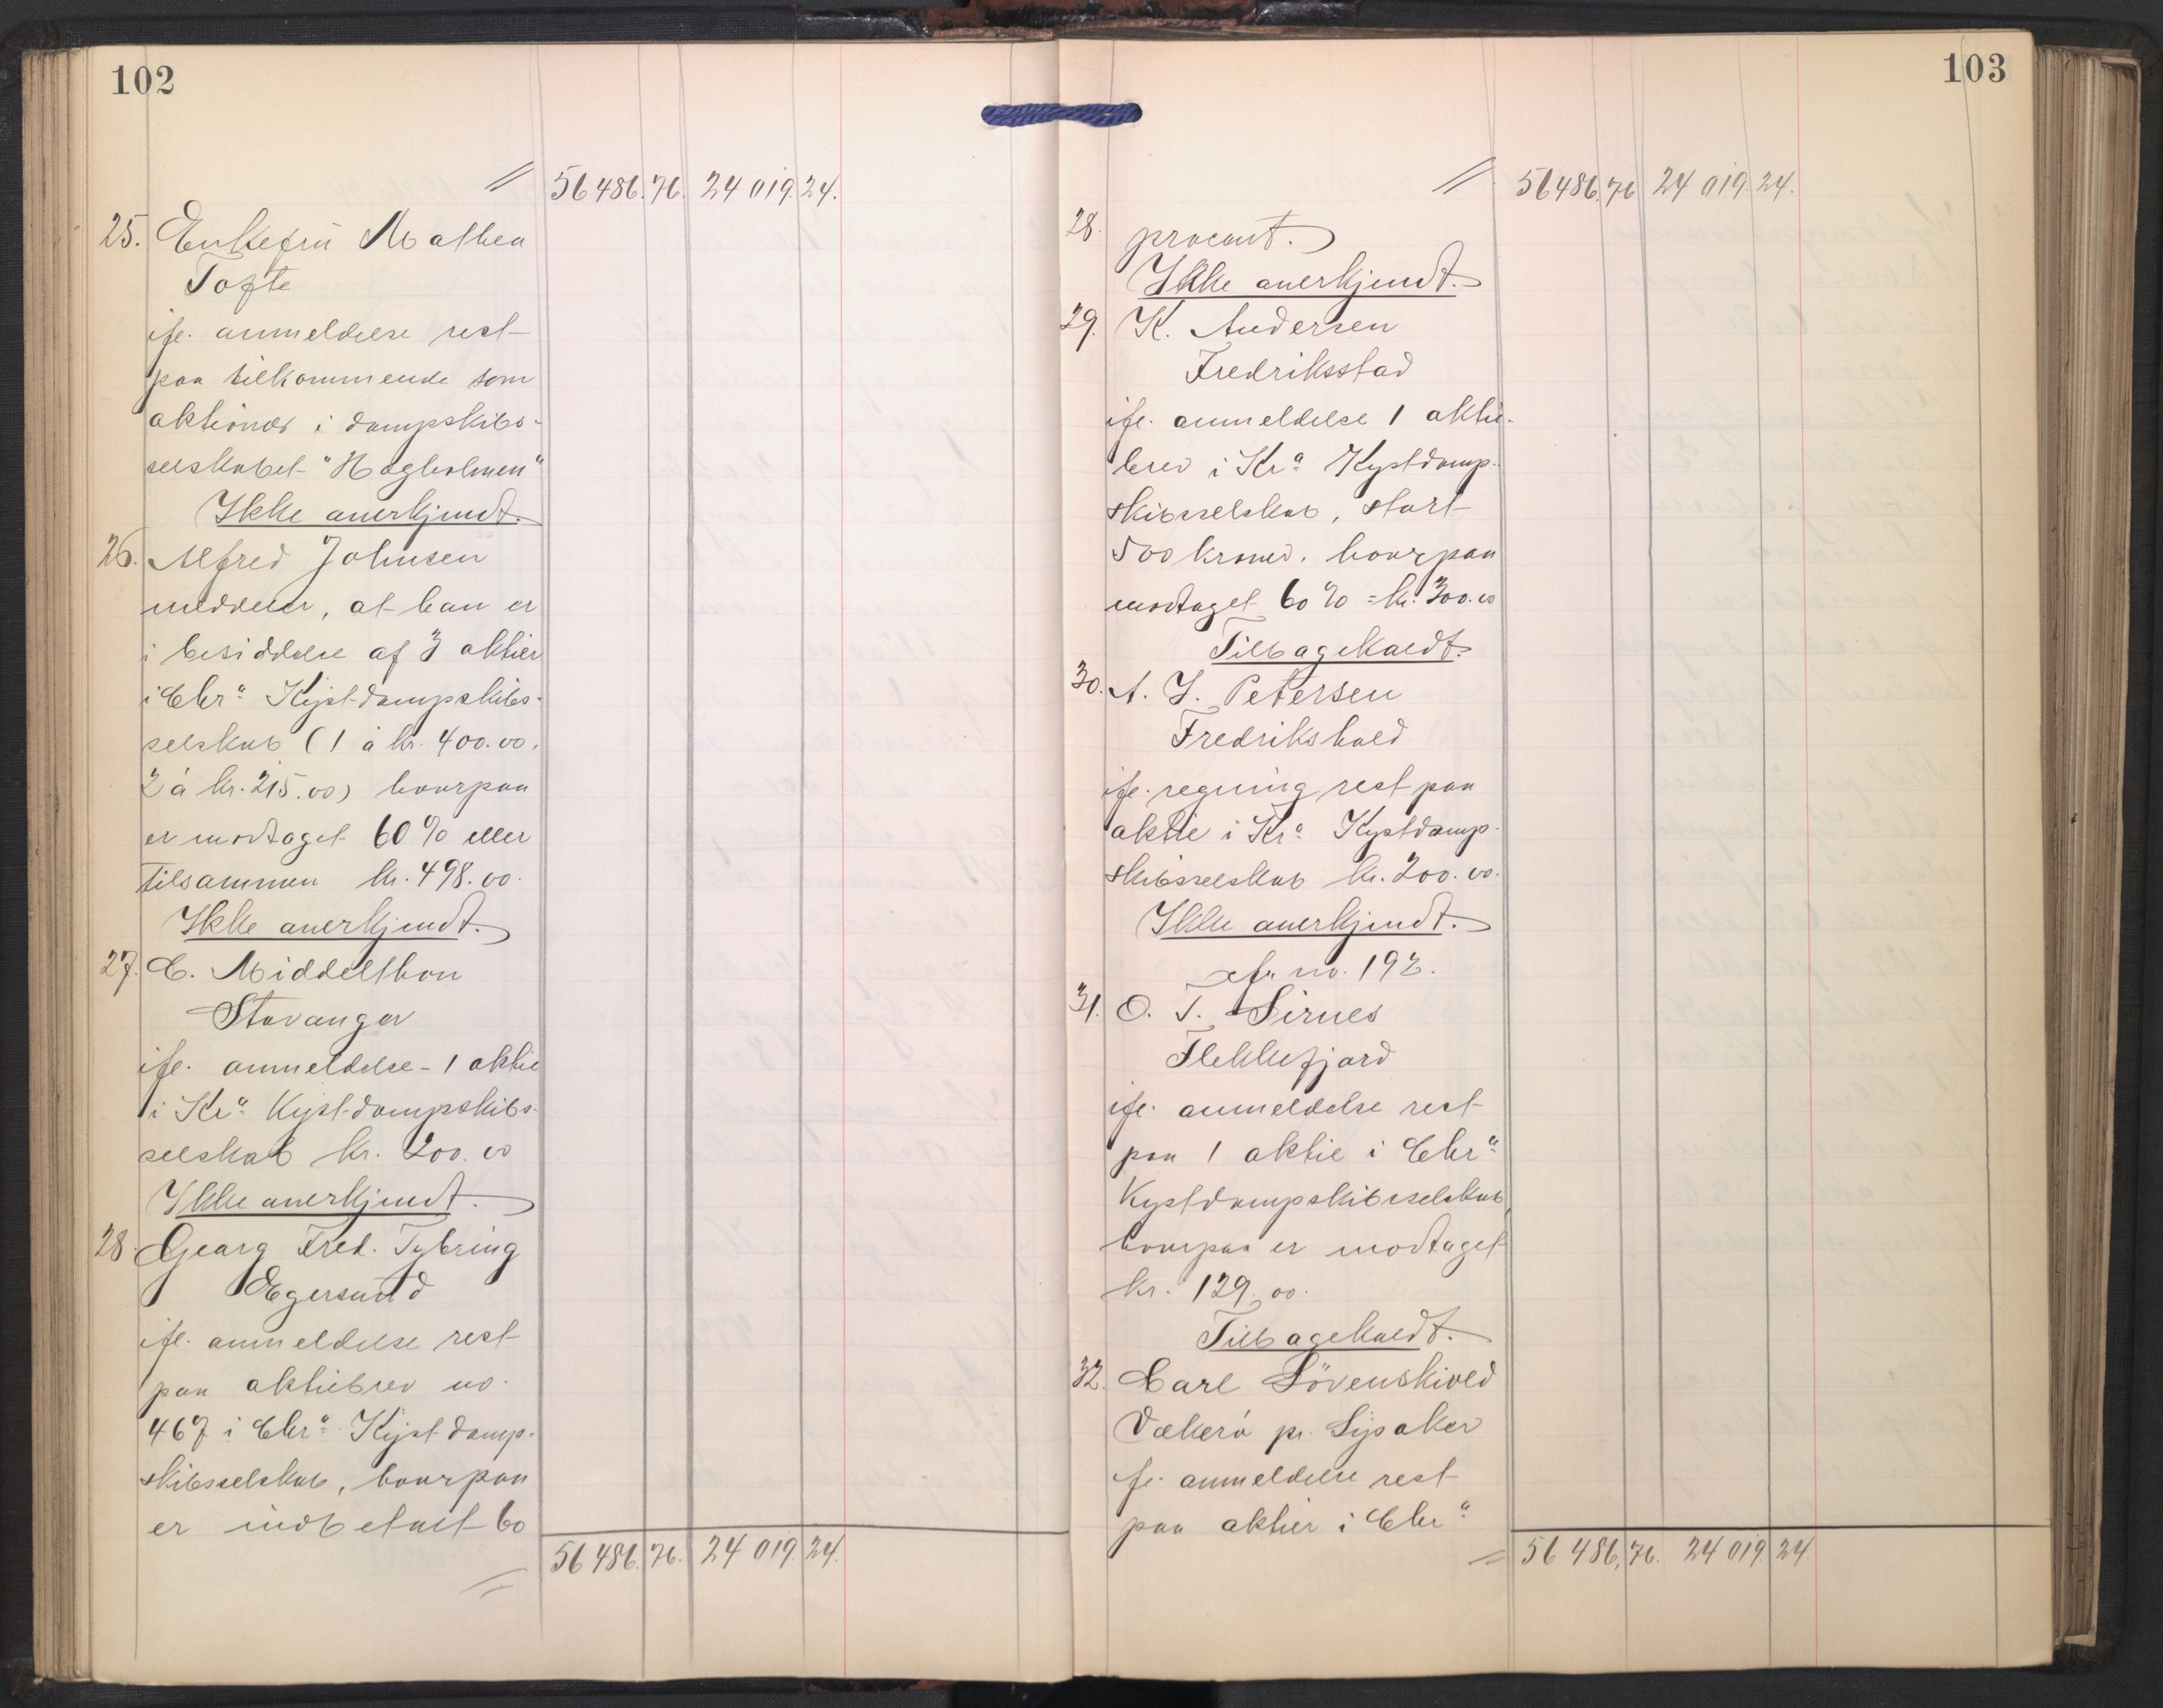 102
// 56 486.76. 24 019.24.
25. Enkefru Mathea
Tofte
ifl. anmeldelse rest
paa tilkommende som
aktionær i dampskibs-
selskabet "Hægholmen"
Ikke anerkjendt.
26. Alfred Johnsen
meddeler, at han er
i besiddelse af 3 aktier
i Chrª Kystdampskibs-
selskab (1 à kr. 400.00,
2 à kr. 215.00) hvorpaa
er modtaget 60% eller
tilsammen kr. 498.00.
Ikke anerkjendt.
27. C. Middelthon
Stavanger
ifl. anmeldelse - 1 aktie
i Krª Kystdampskibs-
selskab kr. 200.00
Ikke anerkjendt.
28. Georg Fred. Tybring
Egersund
ifl. anmeldelse rest
paa aktiebrev no.
467 i Chrª Kystdamp-
skibsselskab, hvorpaa
er indbetalt 60
56 486.76. 24 019.24.
103
// 56 486.76 24 019.24.
28. procent.
Ikke anerkjendt.
29. K. Andersen
Fredriksstad
ifl. anmeldelse 1 aktie-
brev i Krª Kystdamp-
skibsselskab, stort
500 kroner. hvorpaa
modtaget 60% = kr. 300.00
Tilbagekaldt.
30. A. J. Petersen
Fredrikshald
ifl. regning rest paa
aktie i Krª Kystdamp-
skibsselskab kr. 200.00.
Ikke anerkjendt.
cfr. no. 192.
31. O. T. Sirnes
Flekkefjord
ifl. anmeldelse rest
paa 1 aktie i Chrª
Kystdampskibsselskab,
hvorpaa er modtaget
kr. 129.00.
Tilbagekaldt.
32. Carl Lövenskiold
Vækerö pr. Lysaker
ifl. anmeldelse rest
paa aktier i Chrª
56 486.76. 24 019 24